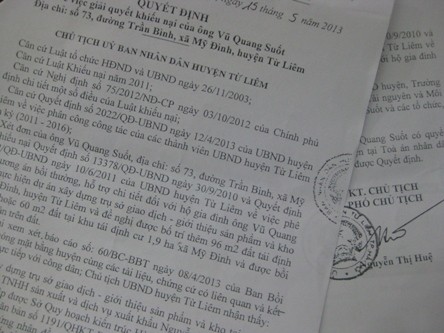 ngày 15 tháng 5 năm 2013
QUYẾT ĐỊNH
Về việc giải quyết khiếu nại của ông Vũ Quang Suốt
Địa chỉ: số 73, đường Trần Bình, xã Mỹ Đình, huyện Từ Liêm
CHỦ TỊCH UỶ BAN NHÂN DÂN HUYỆN TỪ LIÊM
Căn cứ Luật tổ chức HĐND và UBND ngày 26/11/2003;
Căn cứ Luật Khiếu nại năm 2011;
Căn cứ Nghị định số 75/2012/NĐ-CP ngày 03/10/2012 của Chính phủ
định chi tiết một số điều của Luật khiếu nại;
Căn cứ Quyết định số 2022/QĐ-UBND ngày 12/4/2013 của UBND huyện
iêm về việc phân công công tác của các thành viên UBND huyện Từ Liêm
kỳ (2011-2016);
Xét đơn của ông Vũ Quang Suốt, địa chỉ: số 73, đường Trần Bình, xã Mỹ
khiếu nại Quyết định số 13378/QĐ-UBND ngày 30/9/2010 và Quyết định
/QĐ-UBND ngày 10/6/2011 của UBND huyện Từ Liêm về việc phê
ương án bồi thường, hỗ trợ chi tiết đối với hộ gia đình ông Vũ Quang
thực hiện dự án xây dựng trụ sở giao dịch - giới thiệu sản phẩm và kho
Đình, huyện Từ Liêm và đề nghị được bố trí thêm 96 m2 đất tái định
hoặc 60 m2 đất tại khu tái định cư 1,9 ha xã Mỹ Đình và được bồi
ản trên đất.
i xem xét báo cáo số: 60/BC-BBT ngày 08/4/2013 của Ban Bồi
óng mặt bằng huyện cùng các tài liệu, chứng cứ có liên quan và kết
ực tiếp với công dân; Chủ tịch UBND huyện Từ Liêm nhận thấy:
xây dựng trụ sở giao dịch - giới thiệu sản phẩm và kho
TNHH sản xuất và dịch vụ xuất khẩu
ợc Sở Quy hoạch kiến trúc
bản số 1191/QHKT
/9/2010 và
n Từ Liêm
huyện, Trưởng
ài nguyên và Môi
và các tổ chức
Quang Suốt có quyền
ện tại Toà án nhân dâ
được Quyết định.
KT. CHỦ TỊCH
PHÓ CHỦ TỊCH
guyễn Thị Huệ